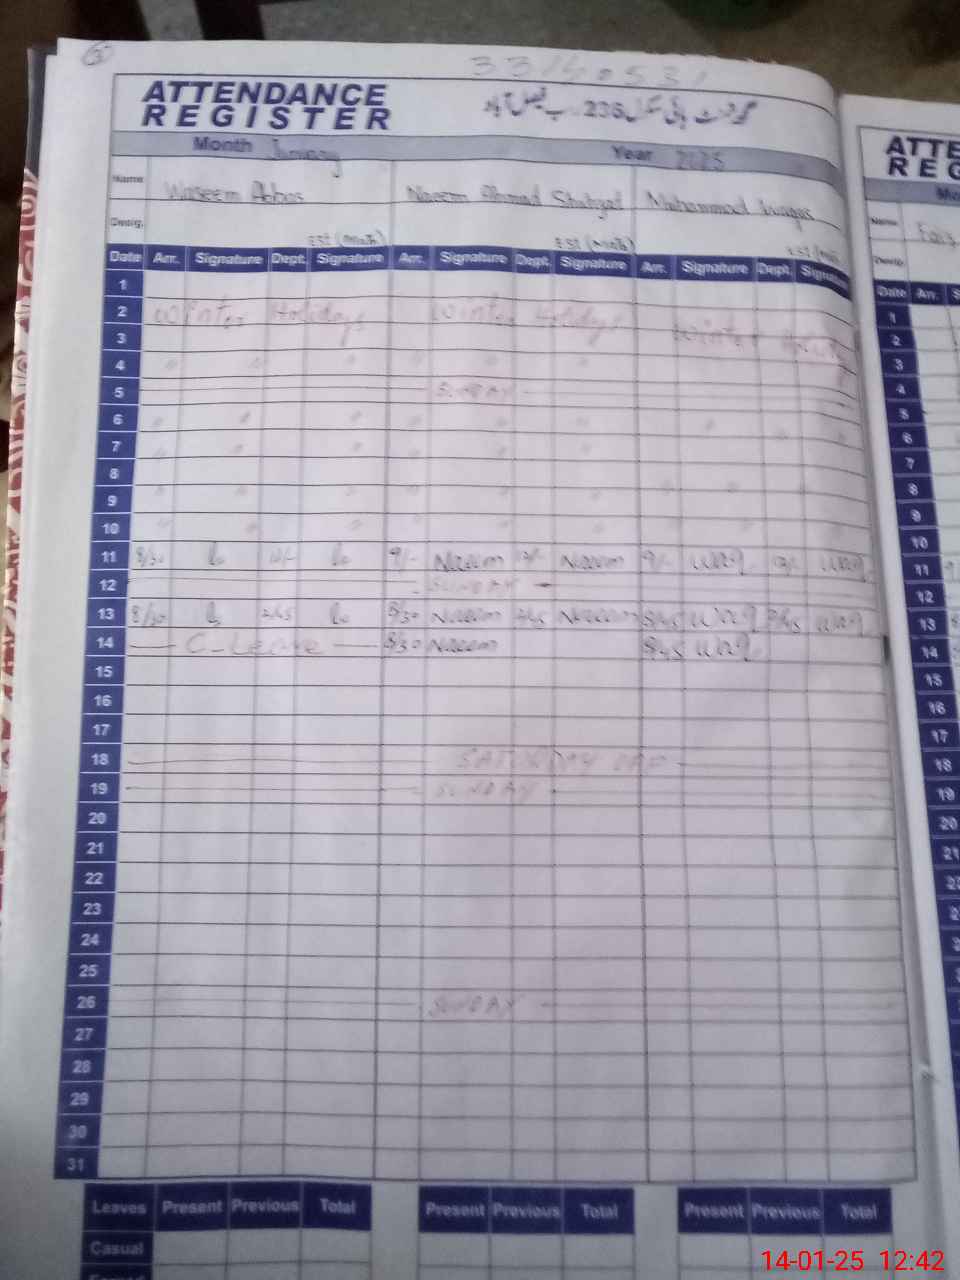 ATTENDANCE
REGISTER
236
Month
Year 2025
Name Waseem Abbas Naeem Ahmad Muhammad Waqas
Desig.
EST (Math) EST (Math) EST (Math)
Date Arr. Signature Dept. Signature Arr. Signature Dept. Signature Arr. Signature Dept. Signature
1
2 Winter Holidays Winter Holidays Winter
3
4 " " " " " " "
5 SUNDAY
6 " " " " " " " " "
7 " " " " " "
8
9 " " " " " " " "
10 " " " " " "
11 8/30 9/- Naeem 12/- Naeem 9/- Waq 12/- Waq
12 SUNDAY
13 8/30 2/45 8/30 Naeem 2/45 Naeem 8/45 Waq 2/45 Waq
14 C-Leave 8/30 Naeem 8/45 Waq
15
16
17
18 SATURDAY OFF
19 SUNDAY
20
21
22
23
24
25
26 SUNDAY
27
28
29
30
31
Leaves Present Previous Total Present Previous Total Present Previous Total
Casual
ATTE
REG
Name
Date Arr. S
1
2
3
4
5
6
7
8
9
10
11
12
13
14
15
16
17
18
19
20
21
14-01-25 12:42